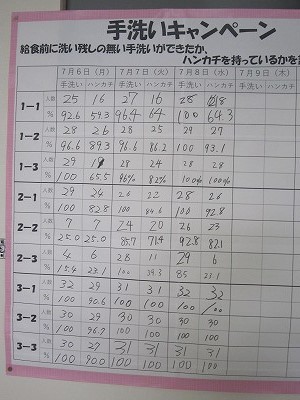 手洗いキャンペーン
給食前に洗い残しの無い手洗いができたか、
ハンカチを持っているかを
7月6日(月) 7月7日(火) 7月8日(水) 7月9日(木)
手洗い ハンカチ 手洗い ハンカチ 手洗い ハンカチ 手洗い ハンカチ
1-1 人数 25 16 27 16 28 18
% 92.6 59.3 96.4 64 100 64.3
1-2 人数 28 26 28 25 29 27
% 96.6 89.3 96.6 86.2 100 93.1
1-3 人数 29 19 28 24 28 28
% 100 65.5 96% 82% 100% 100%
2-1 人数 29 24 26 22 28 26
% 100 82.8 100 84.6 100 92.8
2-2 人数 7 7 24 20 26 23
% 25.0 25.0 85.7 71.4 92.8 82.1
2-3 人数 4 6 28 11 29 6
% 15.4 23.1 100 39.3 85 23.1
3-1 人数 32 29 31 31 32 32
% 100 90.6 100 100 100 100
3-2 人数 30 29 30 30 30 30
% 100 96.7 100 100 100 100
3-3 人数 30 27 31 31 31 31
% 100 90.0 100 100 100 100